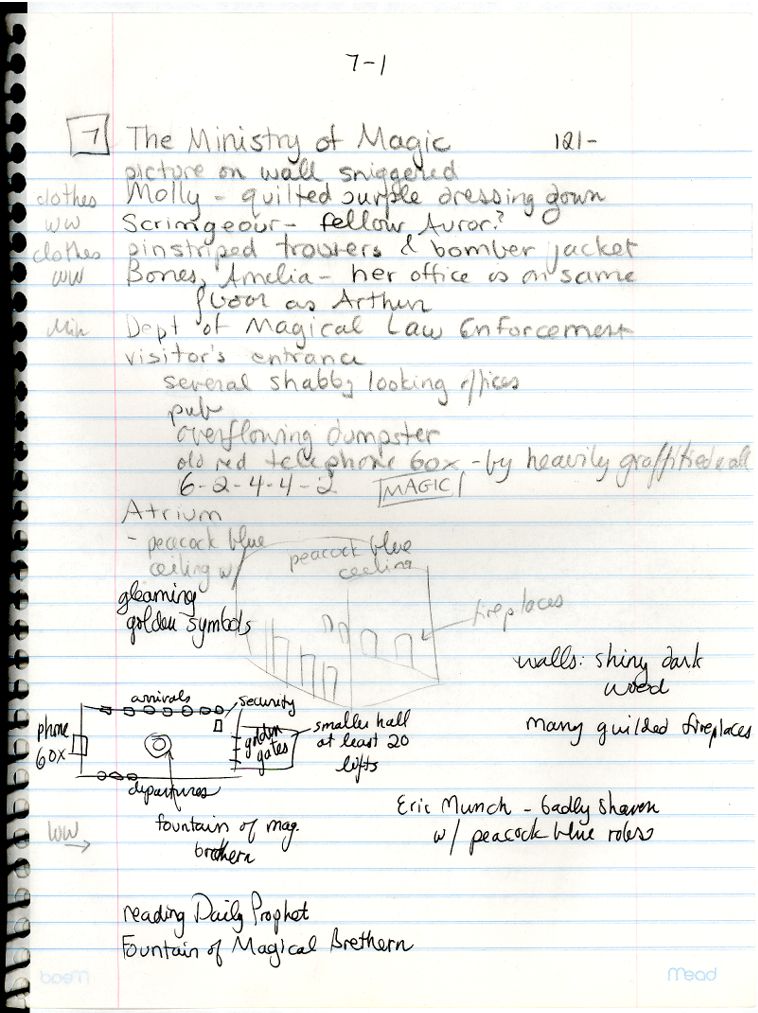 7-1
7 The Ministry of Magic 121-
picture on wall sniggered
clothes Molly - quilted purple dressing gown
WW Scrimgeour - fellow Auror?
clothes pinstriped trousers & bomber jacket
WW Bones, Amelia - her office is on same
floor as Arthur
Min Dept of Magical Law Enforcement
visitor's entrance
several shabby looking offices
pub
overflowing dumpster
old red telephone box - by heavily graffitied wall
6-2-4-4-2 MAGIC
Atrium
- peacock blue
ceiling w/
gleaming
golden symbols
peacock blue
ceeling
fireplaces
walls: shiny dark
wood
many guilded fireplaces
arrivals
security
phone
box
golden
gates
smaller hall
at least 20
lifts
departures
fountain of mag.
brethern
Eric Munch - badly shaven
w/ peacock blue robes
WW →
reading Daily Prophet
Fountain of Magical Brethern
Mead
Mead